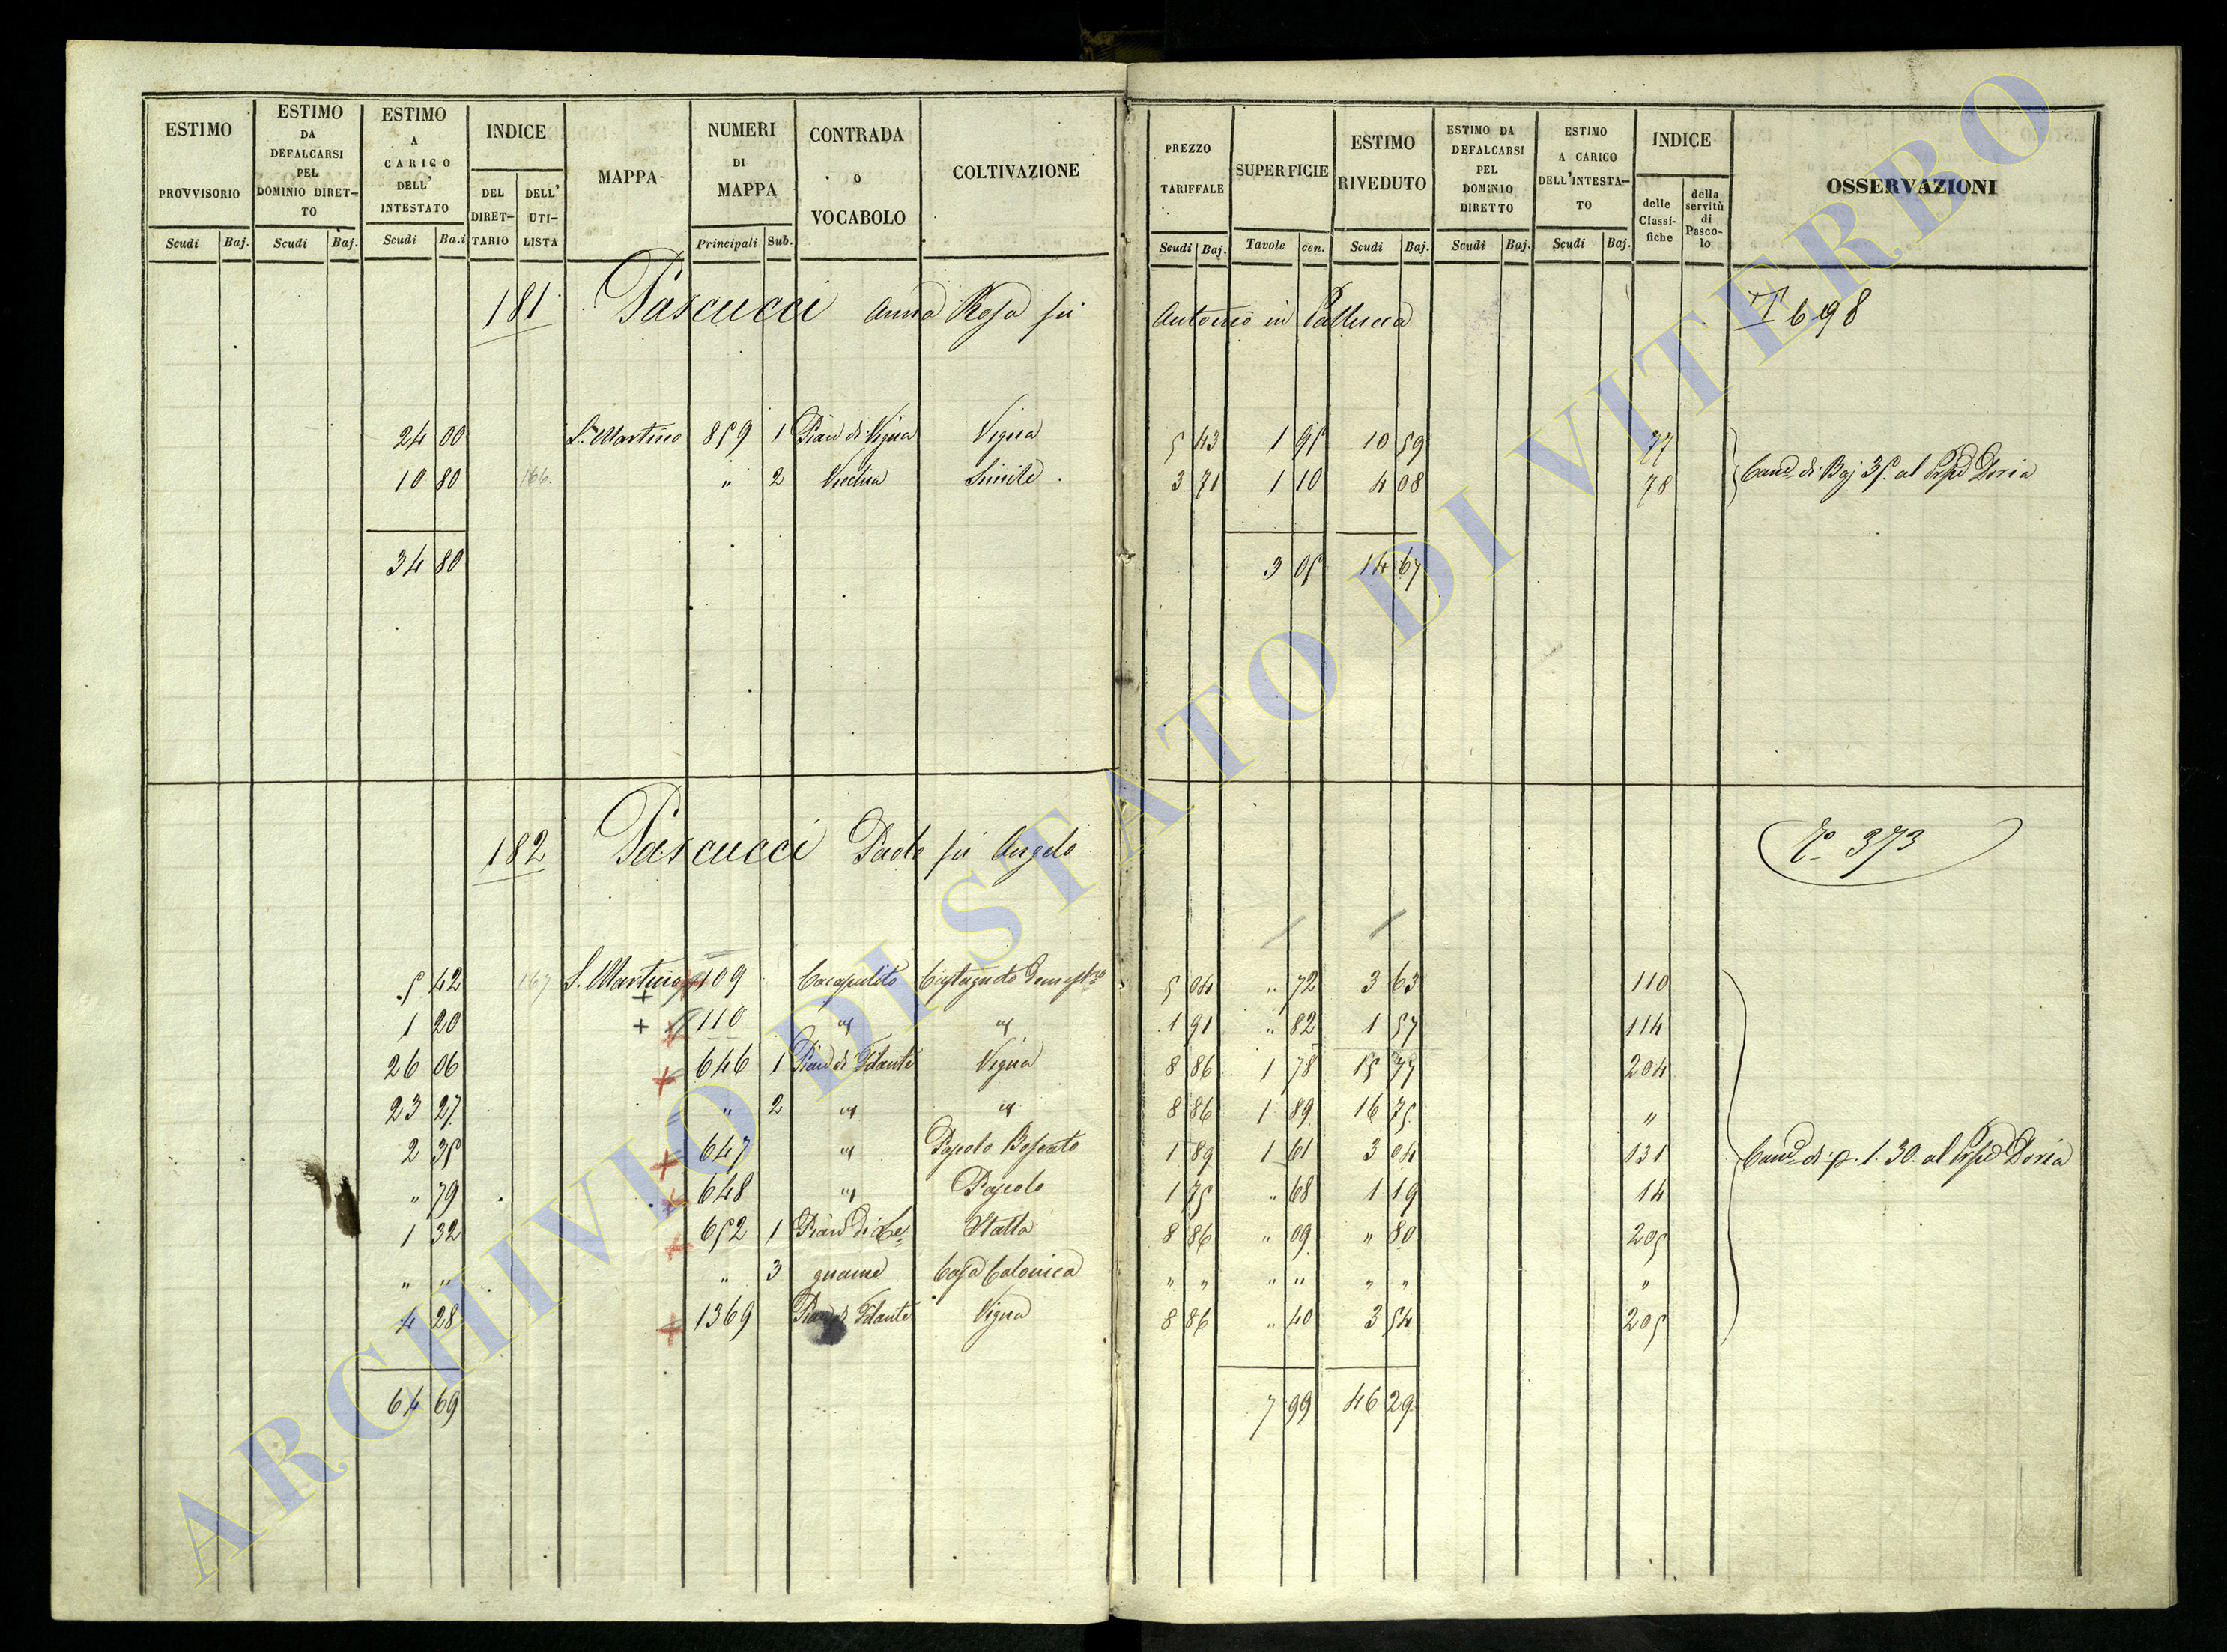 ESTIMO PROVVISORIO Scudi Baj.
ESTIMO DA DEFALCARSI PEL DOMINIO DIRETTO Scudi Baj.
ESTIMO A CARICO DELL' INTESTATO Scudi Ba.i
INDICE DEL DIRETTARIO DELL' UTILISTA
MAPPA
NUMERI DI MAPPA Principali Sub.
CONTRADA O VOCABOLO
COLTIVAZIONE
PREZZO TARIFFALE Scudi Baj.
SUPERFICIE Tavole cen.
ESTIMO RIVEDUTO Scudi Baj.
ESTIMO DA DEFALCARSI PEL DOMINIO DIRETTO Scudi Baj.
ESTIMO A CARICO DELL'INTESTATO Scudi Baj.
INDICE delle Classifiche della servitù di Pascolo
OSSERVAZIONI
181 Pascucci Anna Rosa fu Antonio in Pallucca T 698
24 00 S. Martino 859 1 Pian di Vigna Vigna 5 43 1 95 10 59 77
10 80 166. " 2 Vecchia Simile. 3 71 1 10 4 08 78 di Baj 35. al Doria
34 80 3 05 14 67
182 Pascucci Paolo fu Angelo 373
5 42 167 S. Martino 109 Cacapulito Castagneto Domestco 5 04 " 72 3 63 110
1 20 + 110 " " 1 91 " 82 1 57 114
26 06 646 1 Pian di Vigna 8 86 1 78 15 77 204
23 27 " 2 " " 8 86 1 89 16 75 "
2 35 647 " Pascolo Boscato 1 89 1 61 3 04 131 di p. 1. 30. al Doria
" 79 648 " Pascolo 1 75 " 68 1 19 14
1 32 652 1 Pian di Le= Stalla 8 86 " 09 " 80 205
" " " 3 gname Casa Colonica " " " " " " "
4 28 1369 Vigna 8 86 " 40 3 54 205
64 69 7 99 46 29
ARCHIVIO DI STATO DI VITERBO